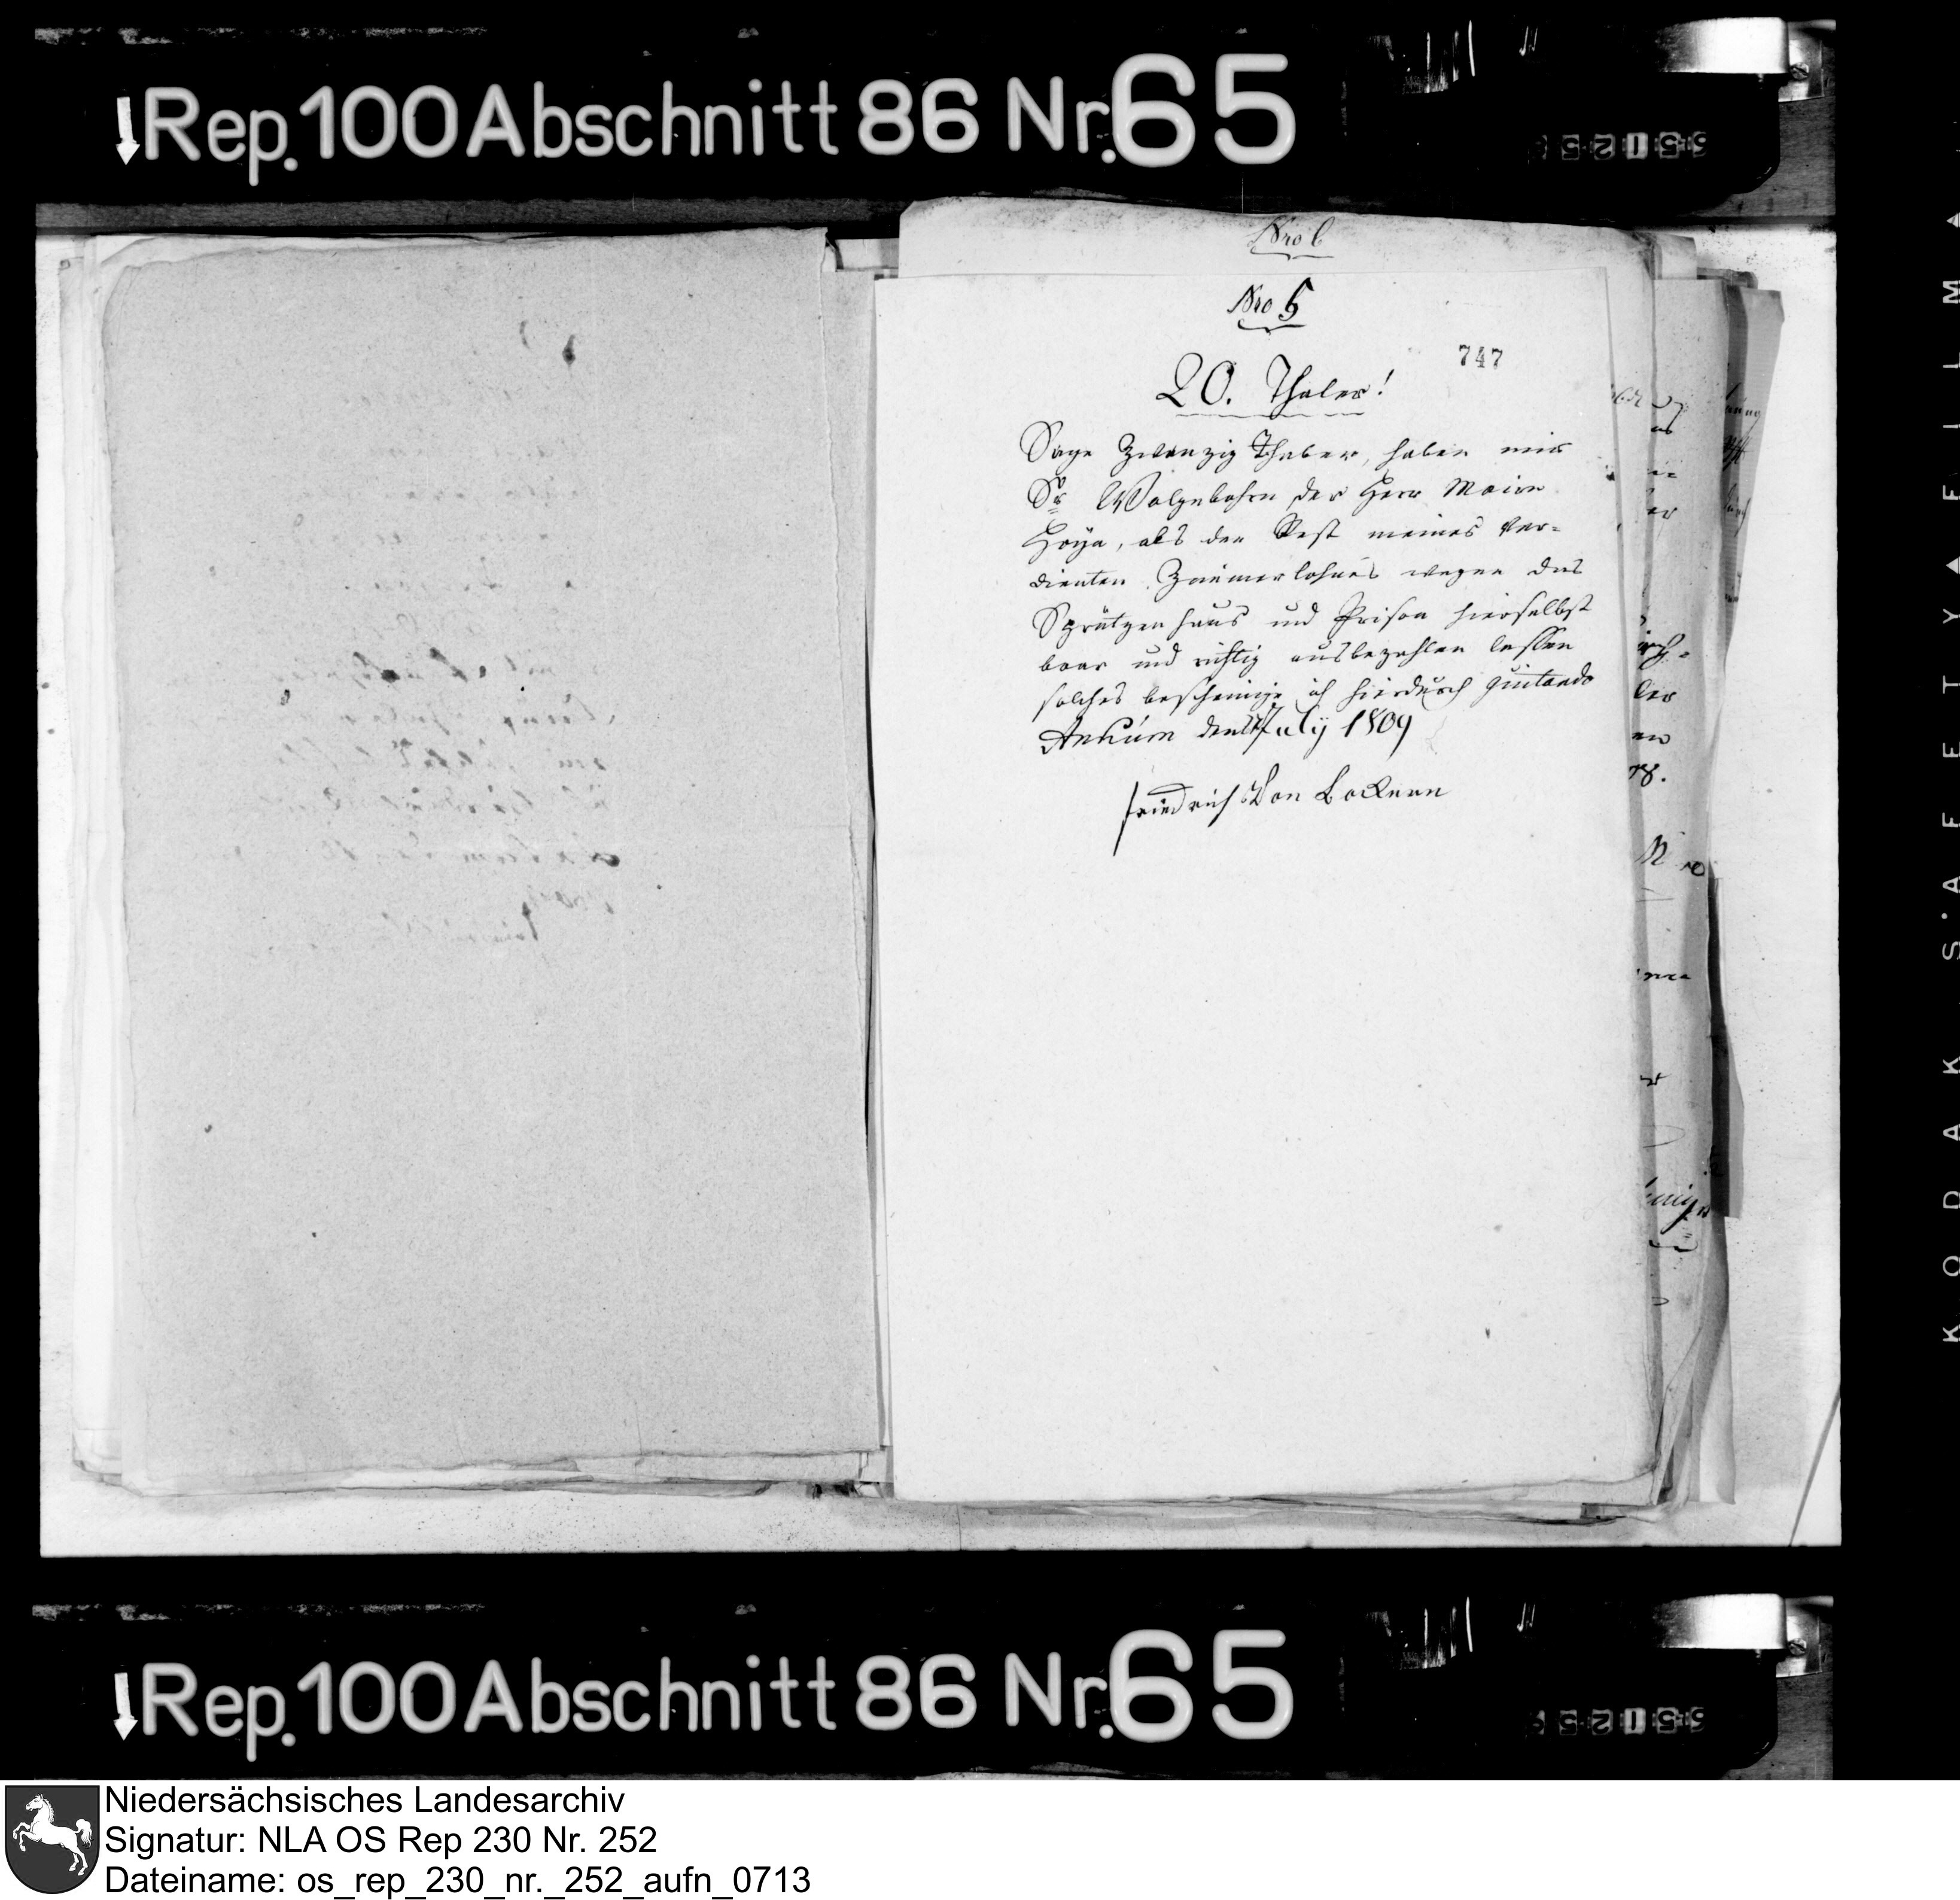 Rep. 100 Abschnitt 86 Nr. 65
Nro 6
Nro 5
747
20. Thaler!
Sage Zwanzig Thaler, haben mir
Sr Wolgebohrn der Herr Maire
Hoÿa, als den Rest meines ver-
dienten Zimmerlohnes wegen das
Sprützenhaus und Prison hierselbst
baar und richtig ausbezahlen lassen
solches bescheinige ich hierdurch quitando
Ankum den July 1809
Friedrich Von Bockern
KODAK S'AFETY FILM
Rep. 100 Abschnitt 86 Nr. 65
Niedersächsisches Landesarchiv
Signatur: NLA OS Rep 230 Nr. 252
Dateiname: os_rep_230_nr._252_aufn_0713